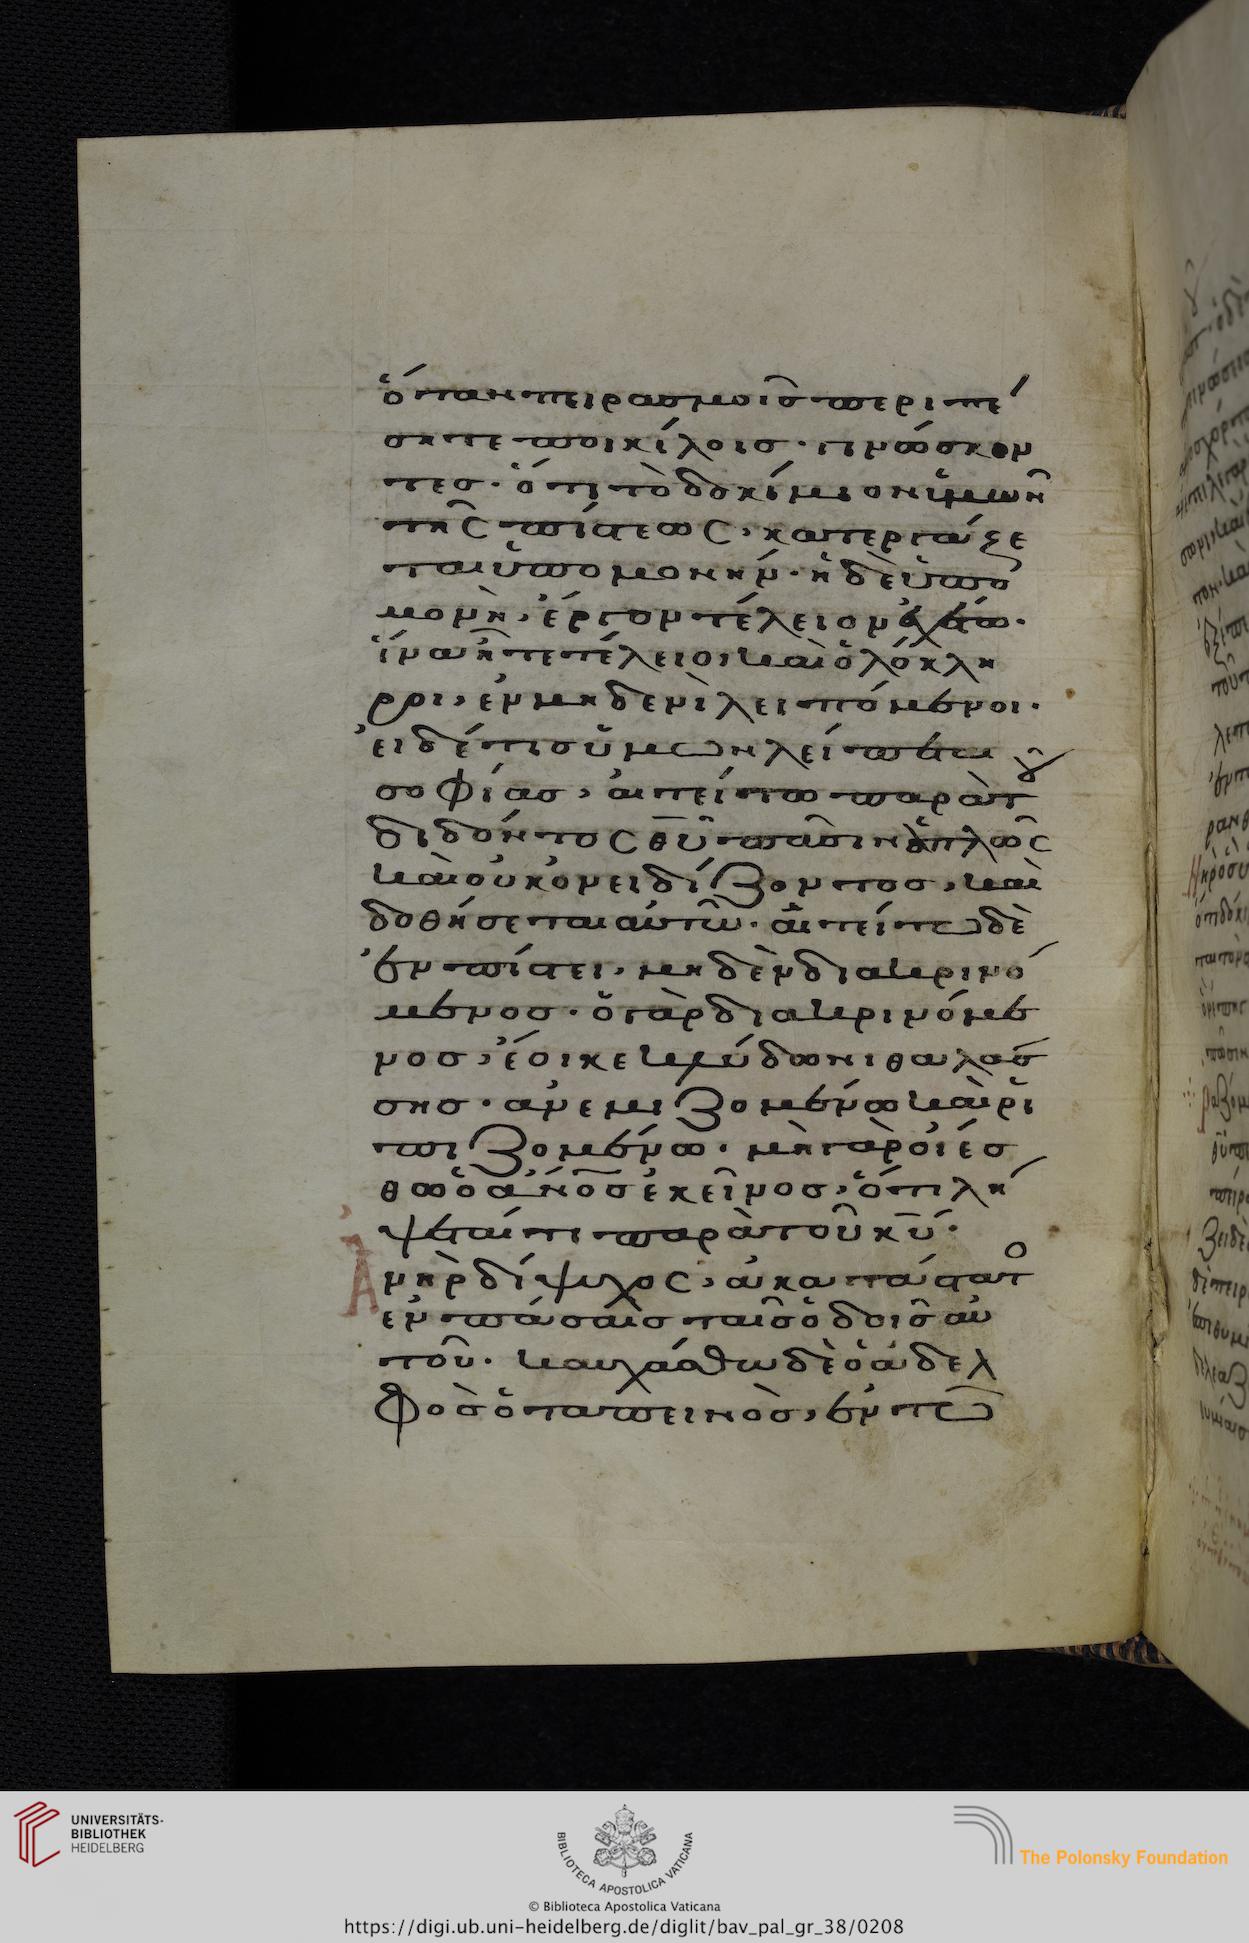 ὅταν πειρασμοῖσ περιπέ
σητε ποικίλοισ· γινώσκον
τεσ· ὅτι τὸ δοκίμιον ὑμῶν
τῆς πίστεως, κατεργάζε
ται ὑπομονήν· ἡ δὲ ὑπο
μονὴ, ἔργον τέλειον ἐχέτω·
ἵνα ἦτε τέλειοι καὶ ὁλόκλη
ροι, ἐν μηδενὶ λειπόμενοι·
εἰ δέ τισ ὑμῶν λείπεται
σοφίασ, αἰτείτω παρὰ τοῦ
διδόντος θῦ πᾶσιν ἁπλῶς
καὶ οὐκ ὀνειδίζοντοσ, καὶ
δοθήσεται αὐτῶ· αἰτείτω δὲ
ἐν πίστει, μηδὲν διακρινό
μενοσ· ὁ γὰρ διακρινόμε
νοσ, ἔοικε κλύδωνι θαλάσ
σησ· ἀνεμιζομένω καὶ ῥι
πιζομένω· μὴ γὰρ οἰέσ
θω ὁ ἄνοσ ἐκεῖνοσ, ὅτι λή
ψεταί τι παρὰ τοῦ κῦ·
Ἀνὴρ δίψυχος, ἀκατάστατο
ἐν πάσαισ ταῖσ ὁδοῖσ αὐ
τοῦ· καυχάσθω δὲ ὁ ἀδελ
φὸσ ὁ ταπεινὸσ, ἐν τῶ
UNIVERSITÄTS-
BIBLIOTHEK
HEIDELBERG
BIBLIOTECA APOSTOLICA VATICANA
The Polonsky Foundation
© Biblioteca Apostolica Vaticana
https://digi.ub.uni-heidelberg.de/diglit/bav_pal_gr_38/0208